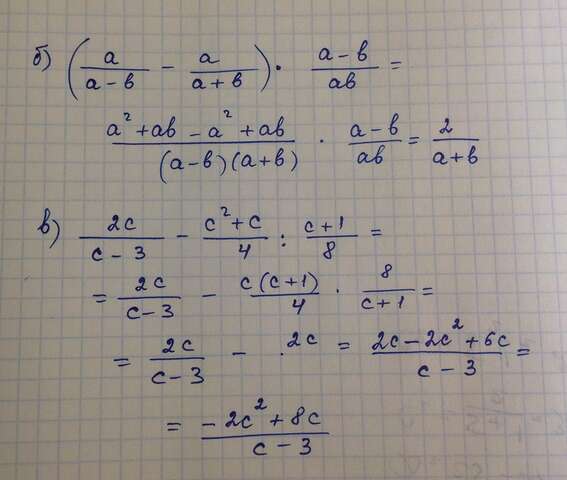 б) (a/(a-b) - a/(a+b)) · (a-b)/(ab) =
(a²+ab-a²+ab)/((a-b)(a+b)) · (a-b)/(ab) = 2/(a+b)
в) 2c/(c-3) - (c²+c)/4 : (c+1)/8 =
= 2c/(c-3) - c(c+1)/4 · 8/(c+1) =
= 2c/(c-3) - · 2c = (2c-2c²+6c)/(c-3) =
= (-2c²+8c)/(c-3)